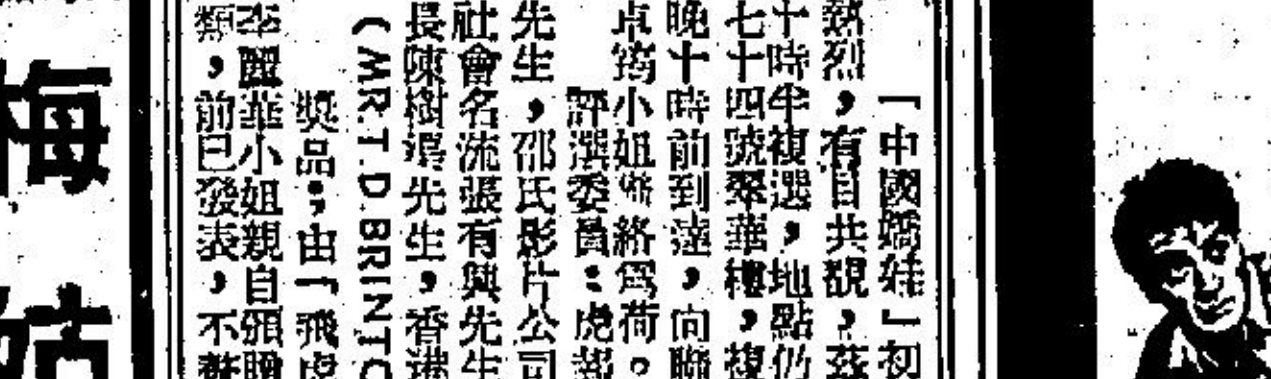 「中國嬌娃」初
熱烈，有目共覩，茲
十時半複選，地點仍
七十四號翠華樓，複
晚十時前到達，向聯
卓筠小姐聯絡爲荷。
評選委員：虎報
先生，邵氏影片公司
社會名流張有興先生
長陳樹渠先生，香港
(MR.T.D.BRINTO
獎品；由「飛虎
李麗華小姐親自頒贈
類，前已發表，不
梅
姑